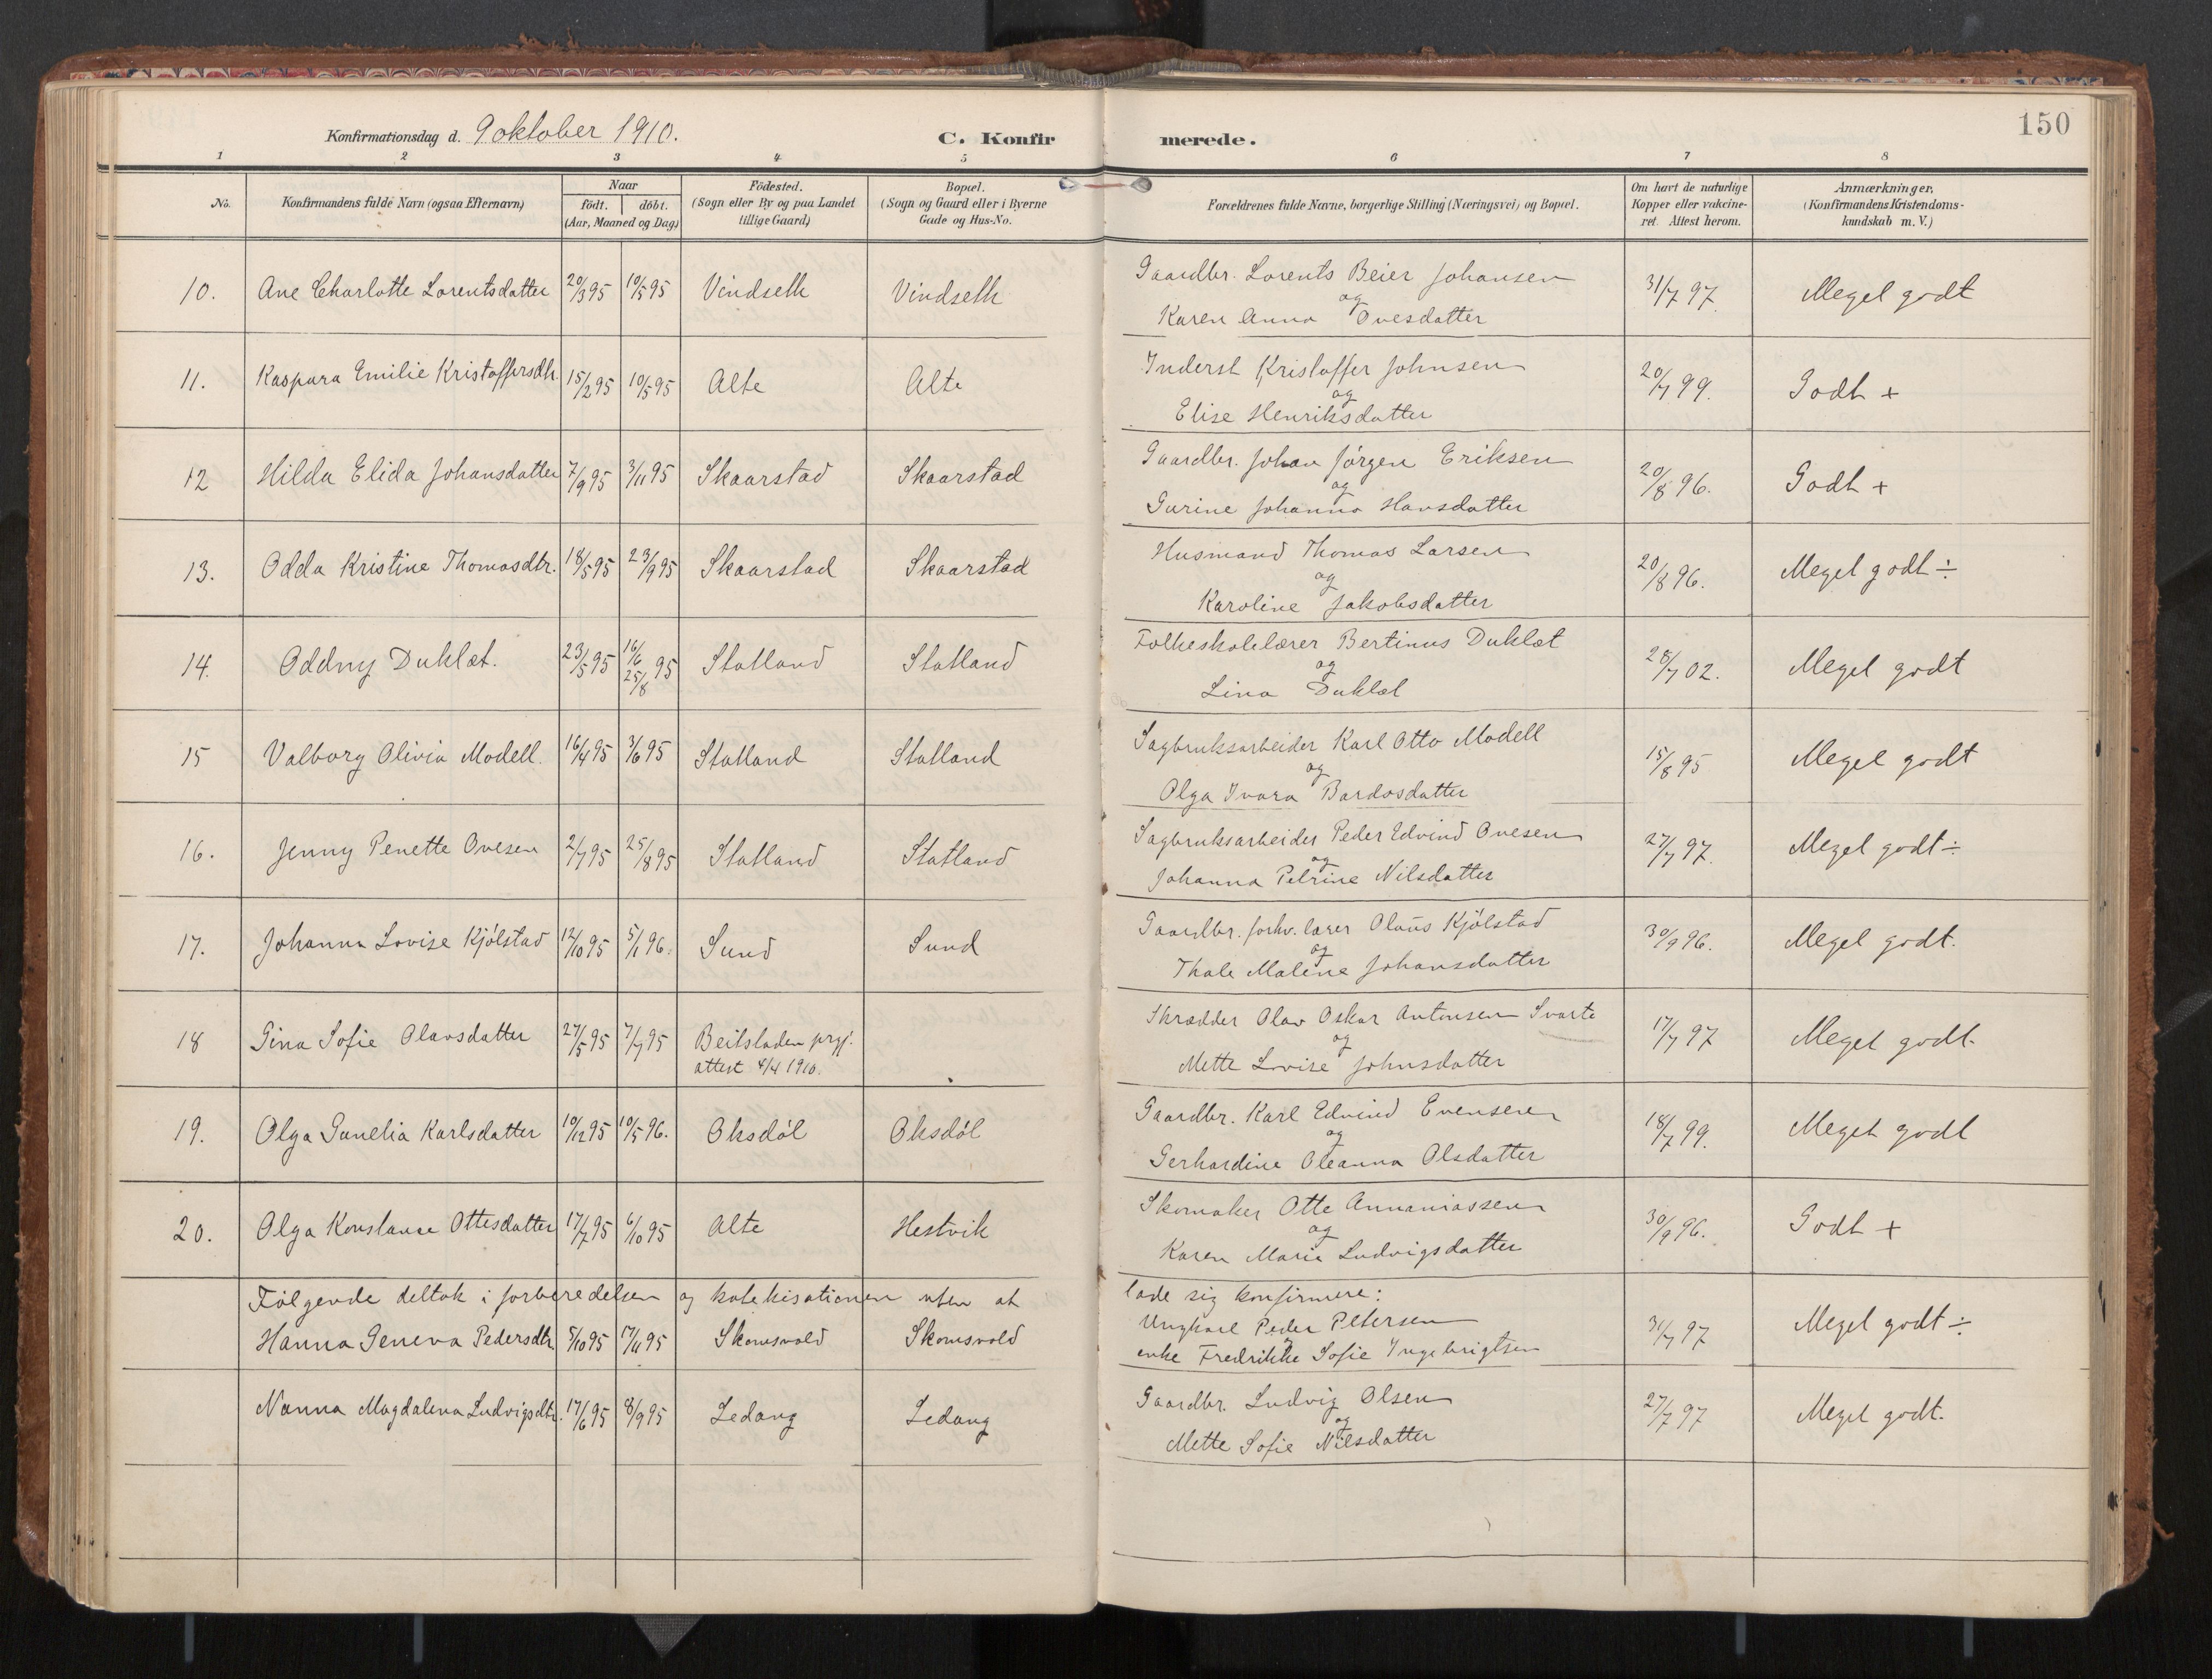 150
Konfirmationsdag d. 9 oktober 1910.
C. Konfirmerede.
1 2 3 4 5 6 7 8
No.
Konfirmandens fulde Navn (ogsaa Efternavn)
Naar
födt. döbt.
(Aar, Maaned og Dag)
Födested.
(Sogn eller By og paa Landet
tillige Gaard)
Bopæl.
(Sogn og Gaard eller i Byerne
Gade og Hus-No.
Forældrenes fulde Navne, borgerlige Stilling (Næringsvei) og Bopæl.
Om havt de naturlige
Kopper eller vakcine-
ret. Attest herom.
Anmærkninger.
(Konfirmandens Kristendoms-
kundskab m. V.)
10. Ane Charlotte Lorentsdatter 20/3 95 10/5 95 Vindseth Vindseth
Gaardbr. Lorents Beier Johansen
og
Karen Anna Ovesdatter
31/7 97. Meget godt
11. Kaspara Emilie Kristoffersdtr. 15/2 95 10/5 95 Alte Alte
Inderst Kristoffer Johnsen
og
Elise Henriksdatter
20/7 99. Godt +
12 Hilda Elida Johansdatter 7/9 95 3/11 95 Skaarstad Skaarstad
Gaardbr. Johan Jörgen Eriksen
og
Gurine Johanna Hansdatter
20/8 96. Godt +
13. Odda Kristine Thomasdtr. 18/5 95 23/9 95 Skaarstad Skaarstad
Husmand Thomas Larsen
og
Karoline Jakobsdatter
20/8 96. Meget godt ÷
14. Oddny Duklæt. 23/5 95 16/6 25/8 95 Statland Statland
Folkeskolelærer Bertinus Duklæt
og
Lina Duklæt
28/7 02. Meget godt
15 Valborg Olivia Modell. 16/4 95 3/6 95 Statland Statland
Sagbruksarbeider Karl Otto Modell
og
Olga Ivara Bardosdatter
15/8 95 Meget godt
16. Jenny Penette Ovesen 2/7 95 25/8 95 Statland Statland
Sagbruksarbeider Peder Edvind Ovesen
og
Johanna Petrine Nilsdatter
27/7 97. Meget godt ÷
17. Johanna Lovise Kjölstad 12/10 95 5/1 96. Sund Sund
Gaardbr. forhv. lærer Olaus Kjölstad
og
Thale Malene Johansdatter
30/9 96. Meget godt.
18 Gina Sofie Olavsdatter 27/5 95 7/7 95 Beitstaden prgj.
attest 4/4 1910.
Skrædder Olav Oskar Antonsen Svarte
og
Mette Lovise Johnsdatter
17/7 97 Meget godt.
19. Olga Gunelia Karlsdatter 10/12 95 10/5 96. Oksdöl Oksdöl
Gaardbr. Karl Edvind Evensen
og
Gerhardine Oleanna Olsdatter
18/7 99. Meget godt
20. Olga Konstanse Ottesdatter 17/7 95 6/10 95 Alte Hestvik
Skomaker Otte Annaniassen
og
Karen Marie Ludvigsdatter
30/9 96. Godt +
Fölgende deltok i forberedelsen og katekisationen uten at lade sig konfirmere:
Hanna Geneva Pedersdtr. 5/10 95 17/11 95 Skomsvold Skomsvold
Ungkarl Peder Petersen
og
enke Fredrikke Sofie Ingebrigtsen
31/7 97 Meget godt ÷
Nanna Magdalena Ludvigsdtr. 17/6 95 8/9 95 Ledang Ledang
Gaardbr. Ludvig Olsen
og
Mette Sofie Nilsdatter
27/7 97 Meget godt.